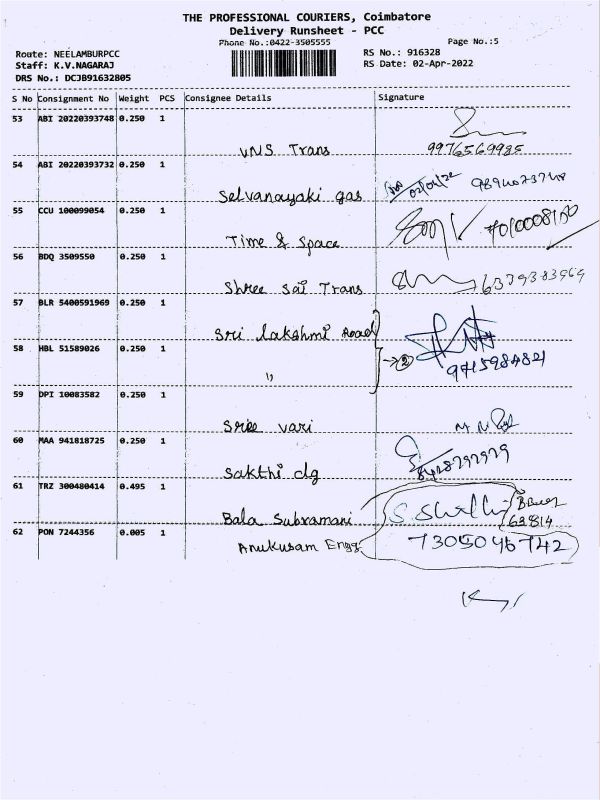 THE PROFESSIONAL COURIERS, Coimbatore
Delivery Runsheet - PCC
Phone No.:0422-3505555
Page No.:5
Route: NEELAMBURPCC
Staff: K.V.NAGARAJ
DRS No.: DCJB91632805
RS No.: 916328
RS Date: 02-Apr-2022
S No Consignment No Weight PCS Consignee Details Signature
53 ABI 20220393748 0.250 1
VNS Trans 9976569985
54 ABI 20220393732 0.250 1
Selvanayaki gas 02/04/22
55 CCU 100099054 0.250 1
Time & Space
56 BDQ 3509550 0.250 1
Shree Sai Trans 6379383969
57 BLR 5400591969 0.250 1
Sri Lakshmi Road
58 HBL 51589026 0.250 1
" → 2
59 DPI 10083582 0.250 1
Sree vari
60 MAA 941818725 0.250 1
Sakthi clg
61 TRZ 300480414 0.495 1
Bala Subramani 63814
62 PON 7244356 0.005 1
Anukusam Engg 7305046742